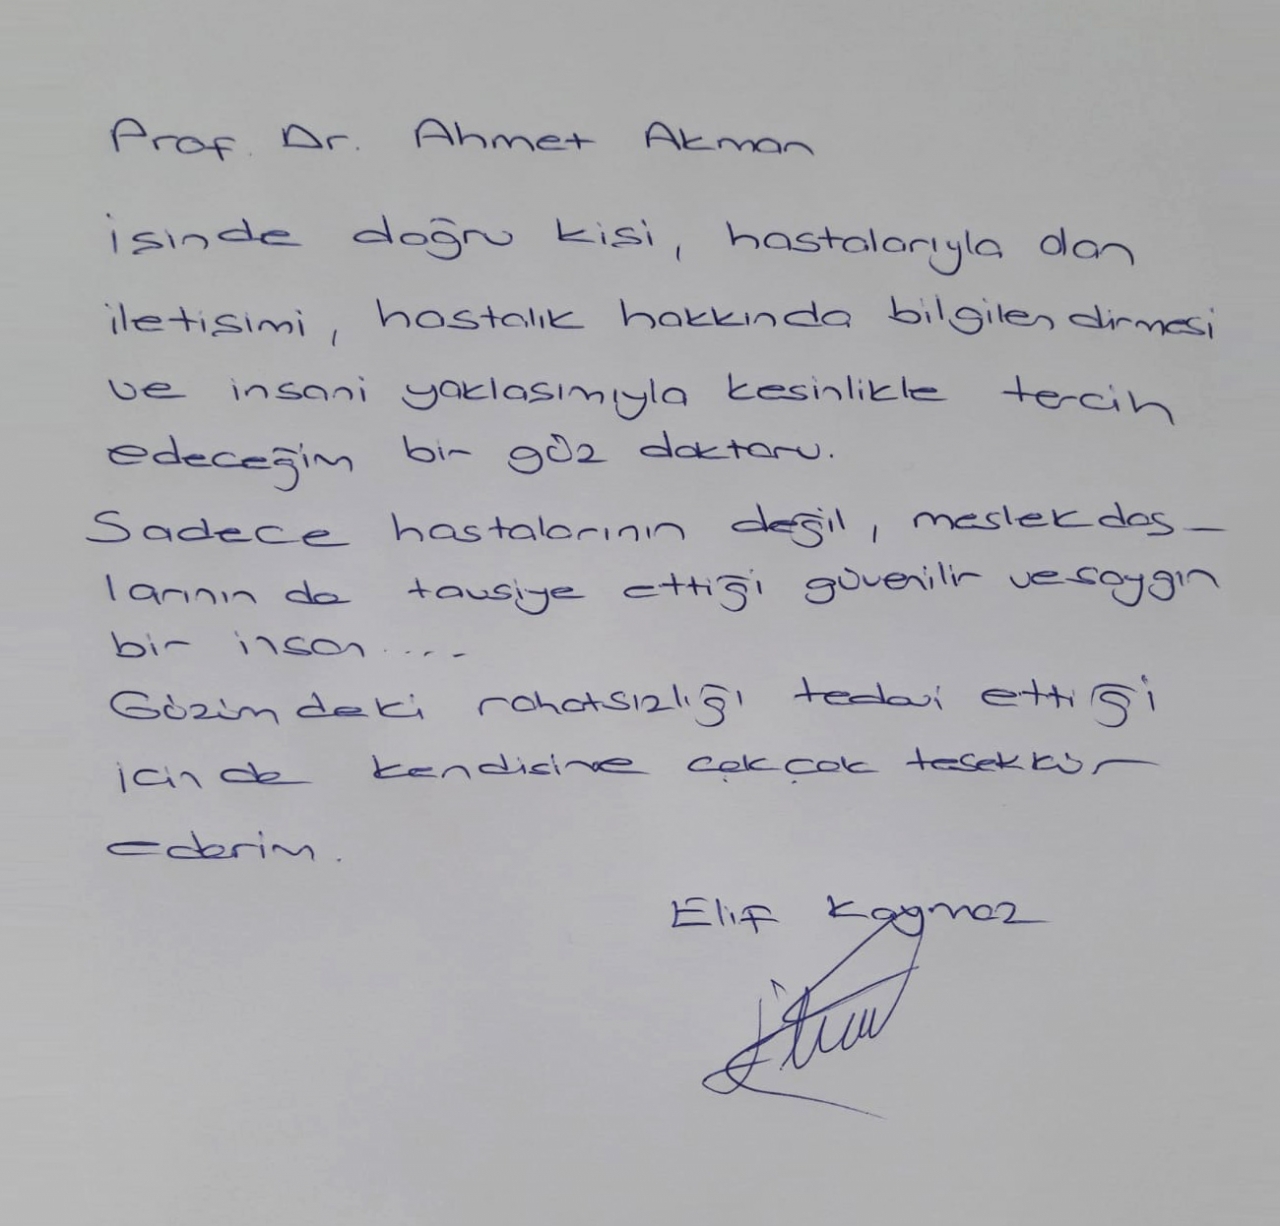 Prof. Dr. Ahmet Akman
İsinde doğru kisi, hastalarıyla olan
iletisimi, hastalık hakkında bilgilendirmesi
ve insani yaklasımıyla kesinlikle tercih
edeceğim bir göz doktoru.
Sadece hastalarının değil, meslekdas-
larının da tavsiye ettiği güvenilir ve saygın
bir insan....
Gözümdeki rahatsızlığı tedavi ettiği
icin de kendisine çok çok tesekkür
ederim.
Elif Kaymaz